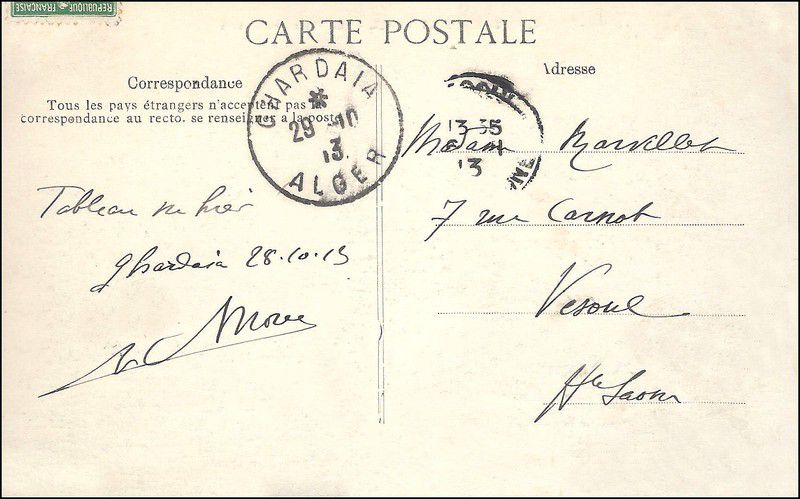 REPUBLIQUE FRANÇAISE
CARTE POSTALE
Correspondance
Tous les pays étrangers n'acceptent pas la
correspondance au recto. se renseigner a la poste
Adresse
GHARDAIA
*
29 -10
13.
ALGER
13 35
13
Tableau vu hier
Ghardaia 28.10.13
Madame
7 rue Carnot
Vesoul
Hte Saone